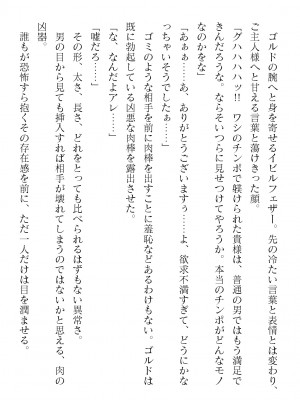 ゴルドの腕へと身を寄せるイビルフェザー。先の冷たい言葉と表情とは変わり、
ご主人様へと甘える言葉と蕩けきった顔。
「グハハハハッ!! ワシのチンポで躾けられた貴様は、普通の男ではもう満足で
きんだろうな。ならそいつらに見せつけてやろうか。本当のチンポがどんなモノ
なのかをな」
「あぁぁ……あ、ありがとうございますぅ……よ、欲求不満すぎて、どうにかな
っちゃいそうでしたぁ……」
ゴミのような相手を前に肉棒を出すことに羞恥などあるわけもない。ゴルドは
既に勃起している凶悪な肉棒を露出させた。
「な、なんだよアレ……」
「嘘だろ……」
その形、太さ、長さ、どれをとっても比べられるはずもない異常さ。
男の目から見ても挿入すれば相手が壊れてしまうのではないかと思える、肉の
凶器。
誰もが恐怖すら抱くその存在感を前に、ただ一人だけは目を潤ませる。